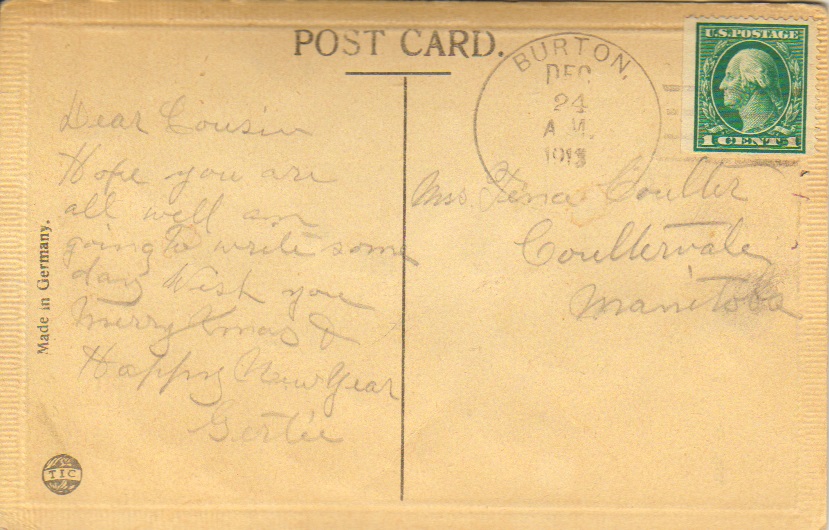 POST CARD.
BURTON,
DEC
24
A.M.
1913
U.S. POSTAGE
1 CENT 1
Dear Cousin
Hope you are
all well am
going to write some
day Wish you
Merry Xmas &
Happy New Year
Gertie
Mrs. Tena Coulter
Coultervale
Manitoba
Made in Germany.
TIC